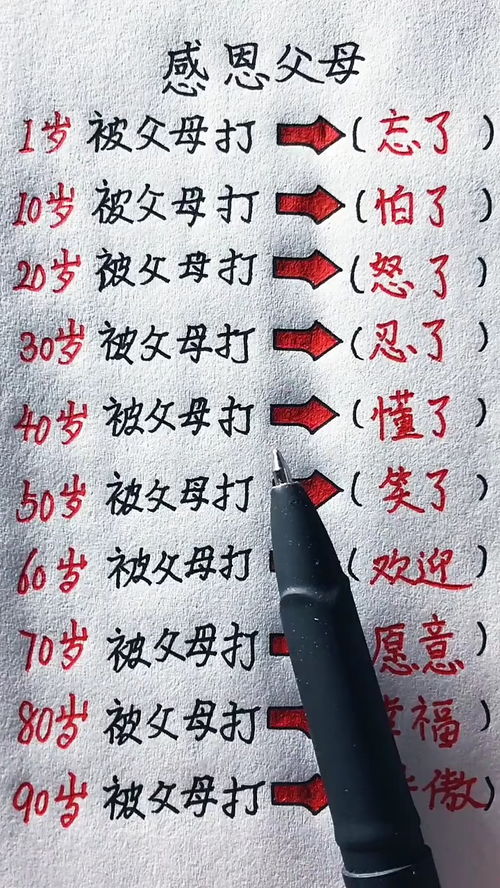 感恩父母
1岁 被父母打 (忘了)
10岁 被父母打 (怕了)
20岁 被父母打 (怒了)
30岁 被父母打 (忍了)
40岁 被父母打 (懂了)
50岁 被父母打 (笑了)
60岁 被父母打 (欢迎)
70岁 被父母打 愿意)
80岁 被父母打 福)
90岁 被父母打 傲)